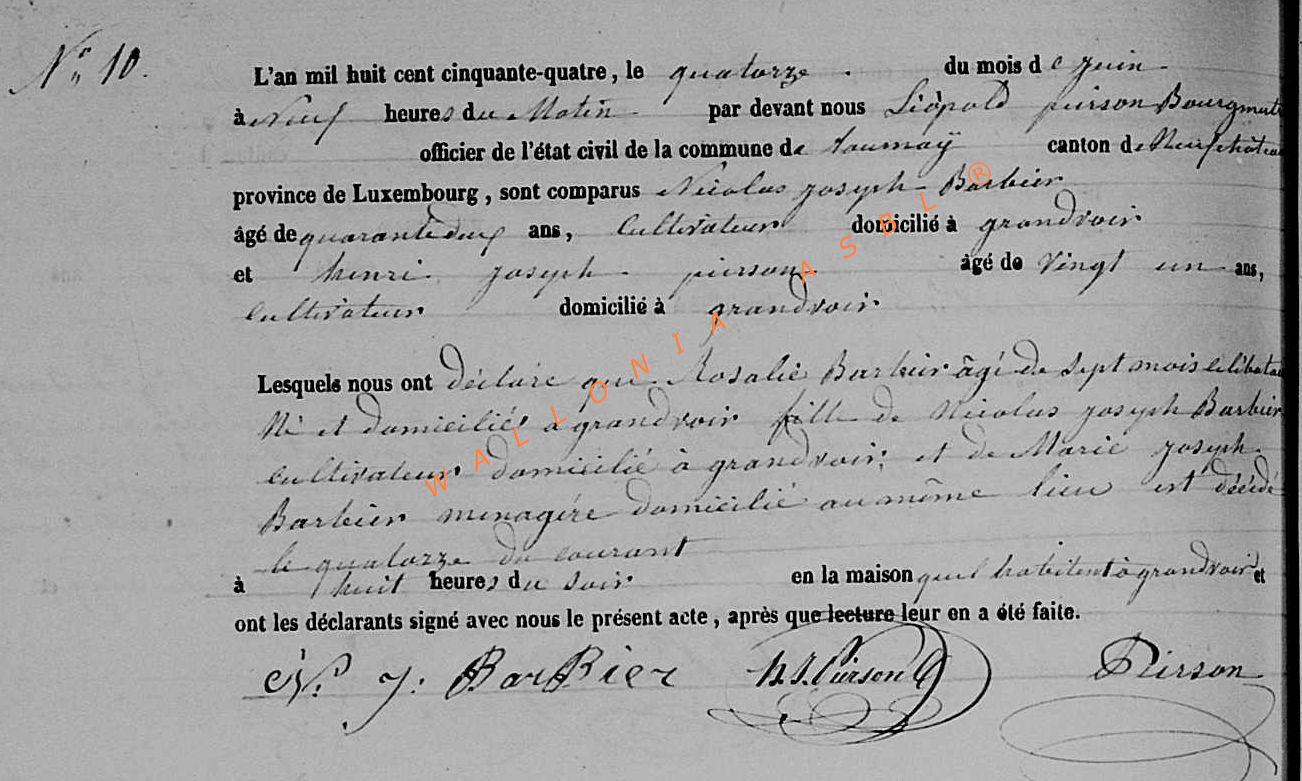 N° 10.
L'an mil huit cent cinquante-quatre, le quatorze du mois de juin
à Neuf heures du Matin par devant nous Léopold pierson Bourgmest
officier de l'état civil de la commune de tournaÿ canton de Neufchâteau
province de Luxembourg, sont comparus Nicolas joseph Barbier
âgé de quarante deux ans, Cultivateur domicilié à grandvoir
et henri joseph pierson âgé de vingt un ans,
cultivateur domicilié à grandvoir
Lesquels nous ont déclaré que Rosalie Barbier âgé de sept mois celibatai
Né et domicilié à grandvoir fille de Nicolas joseph Barbier
cultivateur domicilié à grandvoir, et de Marie joseph
Barbier menagére domicilié au même lieu est décédé
le quatorze du courant
à huit heures du soir en la maison qu'il habitent à grandvoir et
ont les déclarants signé avec nous le présent acte, après que lecture leur en a été faite.
N. j: BarBier h. J. Pierson Pierson
WALLONIA ASBL ®